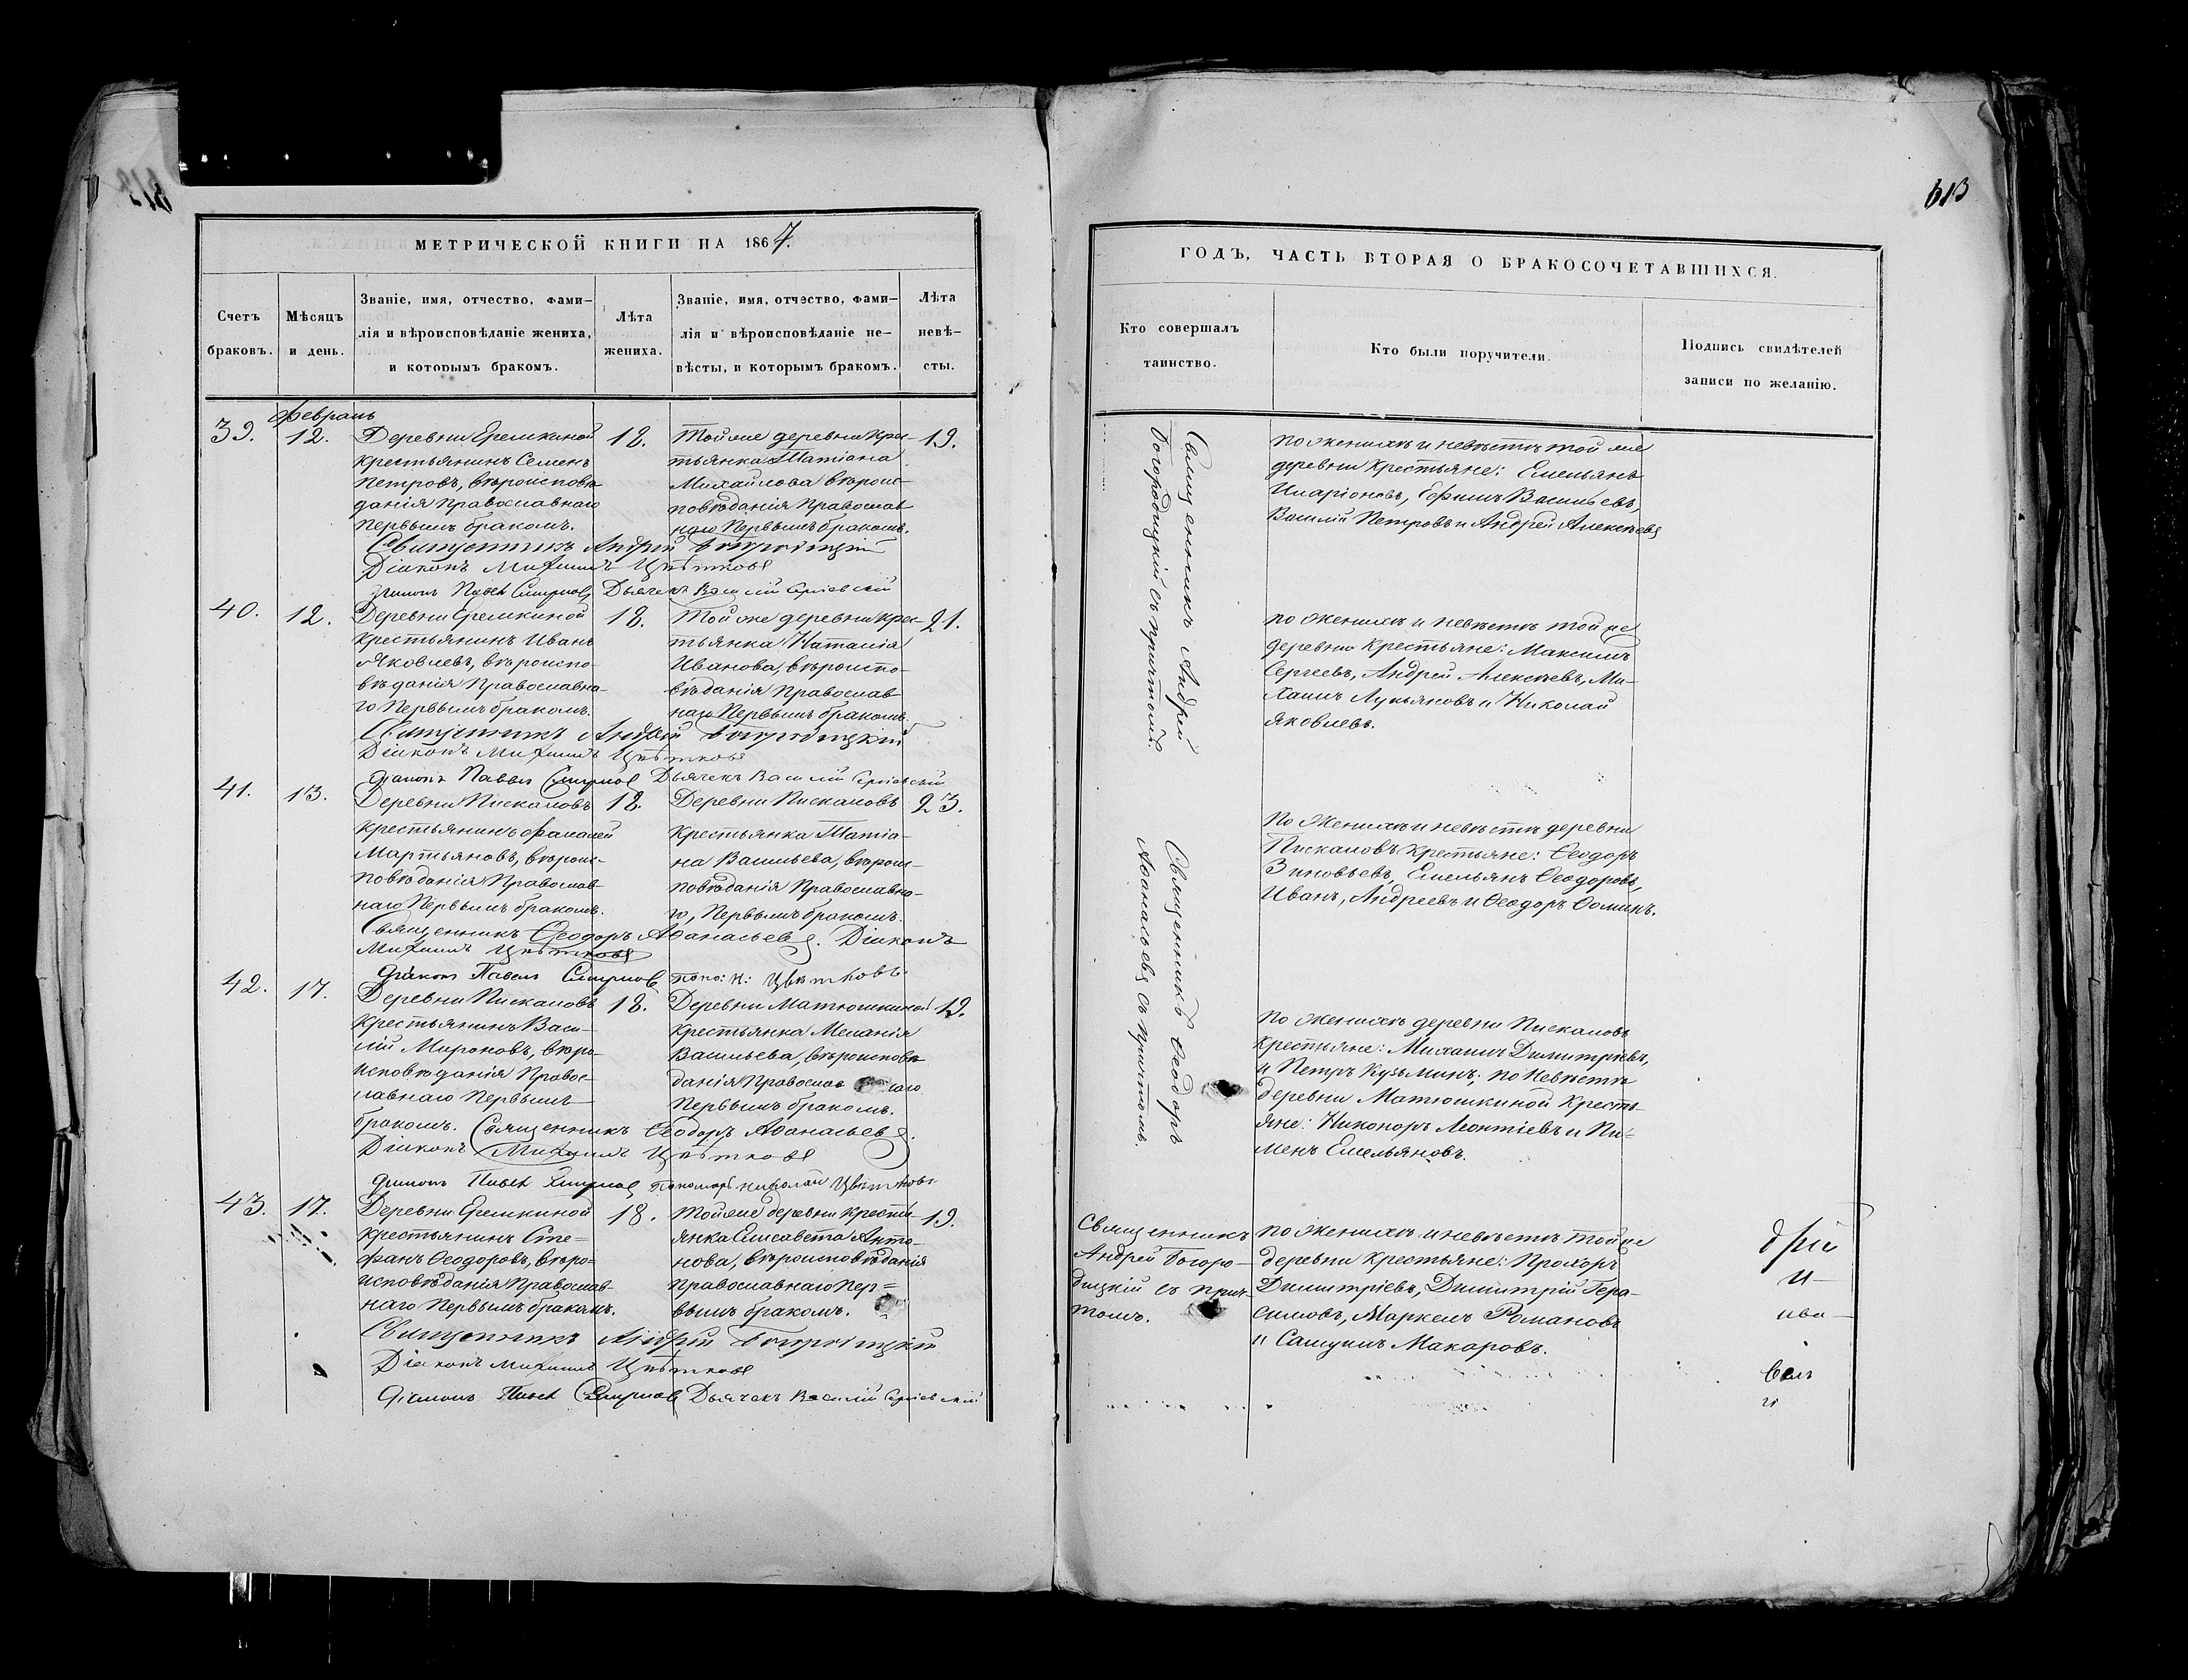 613
МЕТРИЧЕСКОЙ КНИГИ НА 1867.
Счетъ
браковъ.
Мѣсяцъ
и день.
Званіе, имя, отчество, фами-
лія и вѣроисповѣданіе жениха,
и которымъ бракомъ.
Лѣта
жениха.
Званіе, имя, отчество, фами-
лія и вѣроисповѣданіе не-
вѣсты, и которымъ бракомъ.
Лѣта
невѣ-
сты.
Февраль
39.
12.
Деревни Еремкиной
крестьянинъ Семенъ
Петровъ, вѣроисповѣ-
данія Православнаго
Первымъ бракомъ.
18.
Той же деревни крес-
тьянка Татіана
Михайлова вѣроис-
повѣданія Православ
наго Первымъ бракомъ.
19.
Священникъ Андрей Богородицкій
Діаконъ Михаилъ Цвѣтковъ
Діаконъ Павелъ Смирновъ Дьячекъ Василій Сергіевскій
40.
12.
Деревни Еремкиной
крестьянинъ Иванъ
Яковлевъ, вѣроиспо-
вѣданія Православна-
го Первымъ бракомъ.
18.
Той же деревни крес-
тьянка Наталія
Иванова, вѣроиспо-
вѣданія Православ
наго Первымъ бракомъ.
21.
Священникъ Андрей Богородицкій
Діаконъ Михаилъ Цвѣтковъ
Діаконъ Павелъ Смирновъ Дьячекъ Василій Сергіевскій
41.
13.
Деревни Пискаловъ
крестьянинъ Фалалей
Мартьяновъ, вѣроис-
повѣданія Православ
наго Первымъ бракомъ.
18.
Деревни Пискаловъ
крестьянка Татіа-
на Васильева, вѣроис-
повѣданія Православна-
го, Первымъ бракомъ.
23.
Священникъ Ѳеодоръ Аѳанасьевъ. Діаконъ
Михаилъ Цвѣтковъ
Діаконъ Павелъ Смирновъ поно: Н: Цвѣтковъ
42.
17.
Деревни Пискаловъ
крестьянинъ Васи-
лій Мироновъ, вѣро-
исповѣданія Правос-
лавнаго Первымъ
бракомъ.
18.
Деревни Матюшкиной
крестьянка Меланія
Васильева, вѣроисповѣ
данія Православнаго
Первымъ бракомъ.
19.
Священникъ Ѳеодоръ Аѳанасьевъ.
Діаконъ Михаилъ Цвѣтковъ
Діаконъ Павелъ Смирновъ Пономарь Николай Цвѣтковъ
43.
17.
Деревни Еремкиной
крестьянинъ Сте=
фанъ Ѳеодоровъ, вѣро=
исповѣданія Православ-
наго Первымъ бракомъ.
18.
Той же деревни кресть-
янка Елисавета Анто-
нова, вѣроисповѣданія
Православнаго Пер=
вымъ бракомъ.
19.
Священникъ Андрей Богородицкій
Діаконъ Михаилъ Цвѣтковъ
Діаконъ Павелъ Смирновъ Дьячекъ Василій Сергіевскій
613
ГОДЪ, ЧАСТЬ ВТОРАЯ О БРАКОСОЧЕТАВШИХСЯ.
Кто совершалъ
таинство.
Кто были поручители.
Подпись свидѣтелей
записи по желанію.
Священникъ Андрей
Богородицкій съ причтомъ.
По женихѣ и невѣстѣ той же
деревни Крестьяне: Емельянъ
Иларіоновъ, Ефимъ Васильевъ,
Василій Петровъ и Андрей Алексѣевъ
По женихѣ и невѣстѣ той же
деревни Крестьяне: Максимъ
Сергеевъ, Андрей Алексѣевъ, Ми-
хаилъ Лукьяновъ и Николай
Яковлевъ.
Священникъ Ѳеодоръ
Аѳанасьевъ съ причтомъ.
По женихѣ и невѣстѣ деревни
Пискаловъ крестьяне: Ѳеодоръ
Зиновьевъ, Емельянъ Ѳеодоровъ,
Иванъ, Андреевъ и Ѳеодоръ Ѳоминъ.
По женихѣ деревни Пискаловъ
крестьяне: Михаилъ Димитріевъ,
и Петръ Кузьминъ; по невѣстѣ
деревни Матюшкиной Кресть-
яне: Никоноръ Леонтіевъ и Пи=
менъ Емельяновъ.
Священникъ
Андрей Богоро-
дицкій съ прич-
томъ.
По женихѣ и невѣстѣ той же
деревни Крестьяне: Прохоръ
Димитріевъ, Димитрій Гера-
симовъ, Маркелъ Романовъ
и Самуилъ Макаровъ.